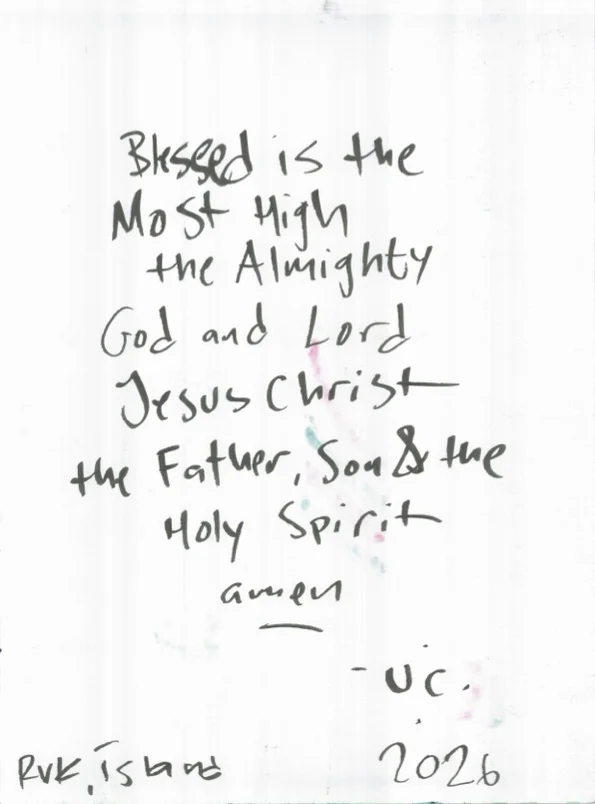 Blessed is the
Most High
the Almighty
God and Lord
Jesus Christ
the Father, Son & the
Holy Spirit
amen
- UC.
RVK, Ísland 2026